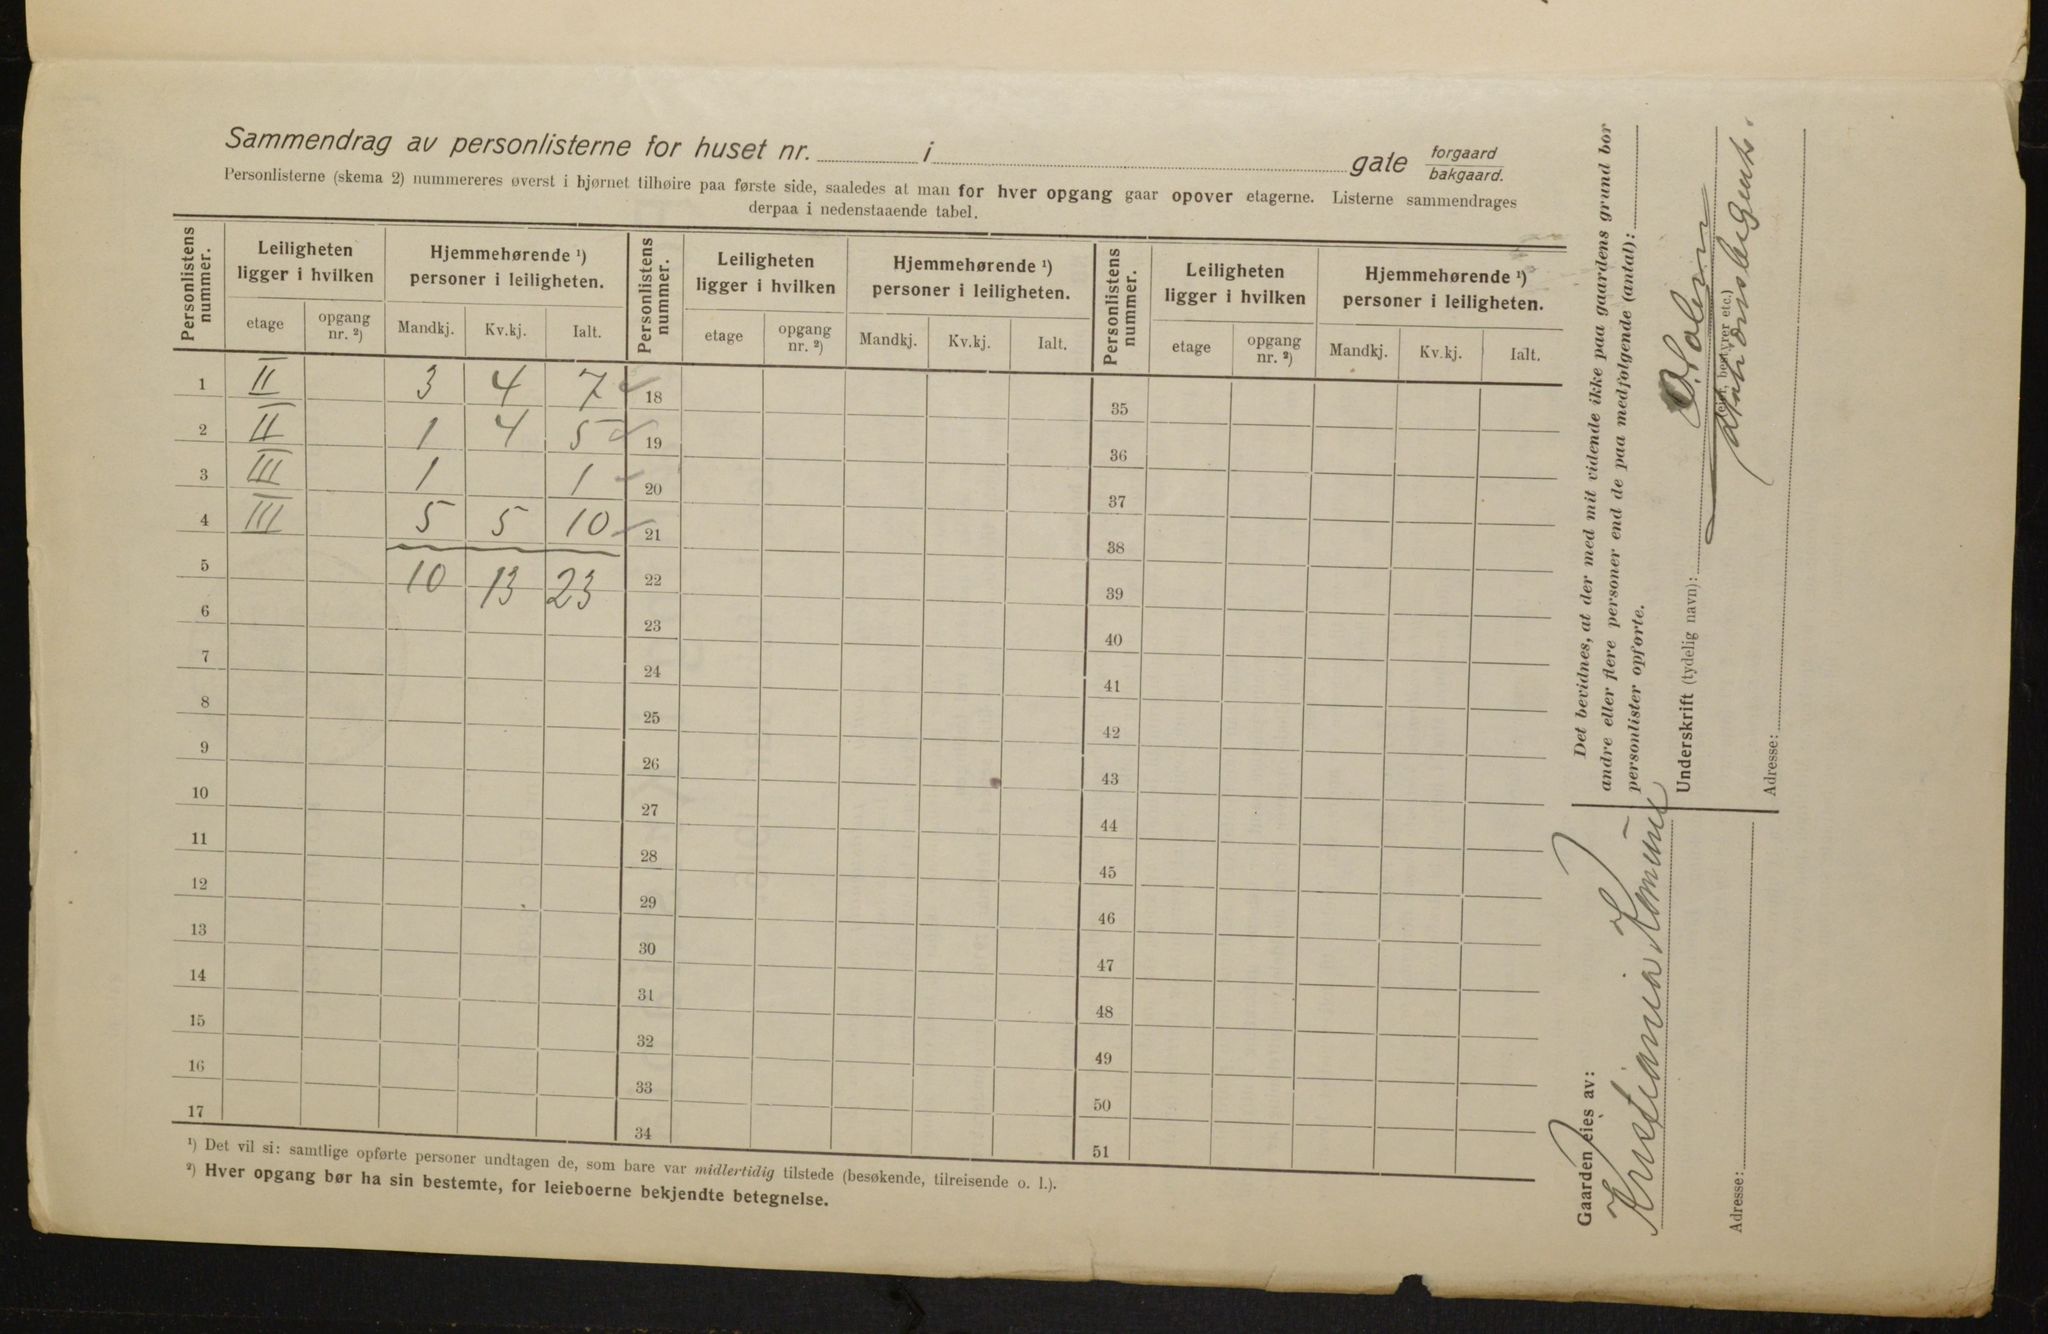 Sammendrag av personlisterne for huset nr. i gate forgaard bakgaard.
Personlisterne (skema 2) nummereres øverst i hjørnet tilhøire paa første side, saaledes at man for hver opgang gaar opover etagerne. Listerne sammendrages
derpaa i nedenstaaende tabel.
Personlistens nummer. Leiligheten ligger i hvilken Hjemmehørende ¹) personer i leiligheten. Personlistens nummer. Leiligheten ligger i hvilken Hjemmehørende ¹) personer i leiligheten. Personlistens nummer. Leiligheten ligger i hvilken Hjemmehørende ¹) personer i leiligheten.
etage opgang nr. ²) Mandkj. Kv.kj. Ialt. etage opgang nr. ²) Mandkj. Kv.kj. Ialt. etage opgang nr. ²) Mandkj. Kv.kj. Ialt.
1 II 3 4 7 18 35
2 II 1 4 5 19 36
3 III 1 1 20 37
4 III 5 5 10 21 38
5 10 13 23 22 39
6 23 40
7 24 41
8 25 42
9 26 43
10 27 44
11 28 45
12 29 46
13 30 47
14 31 48
15 32 49
16 33 50
17 34 51
¹) Det vil si: samtlige opførte personer undtagen de, som bare var midlertidig tilstede (besøkende, tilreisende o. l.).
²) Hver opgang bør ha sin bestemte, for leieboerne bekjendte betegnelse.
Det bevidnes, at der med mit vidende ikke paa gaardens grund bor
andre eller flere personer end de paa medfølgende (antal):
personlister opførte.
Underskrift (tydelig navn):
Adresse:
Gaarden eies av:
Kristiania Komune
Adresse: